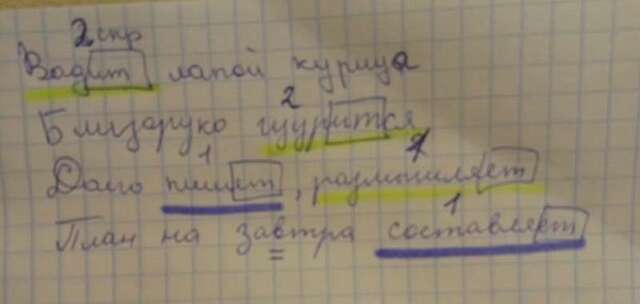 2 спр
Водит лапой курица
2
Близоруко щурится
1 1
Долго пишет, размышляет
1
План на завтра составляет